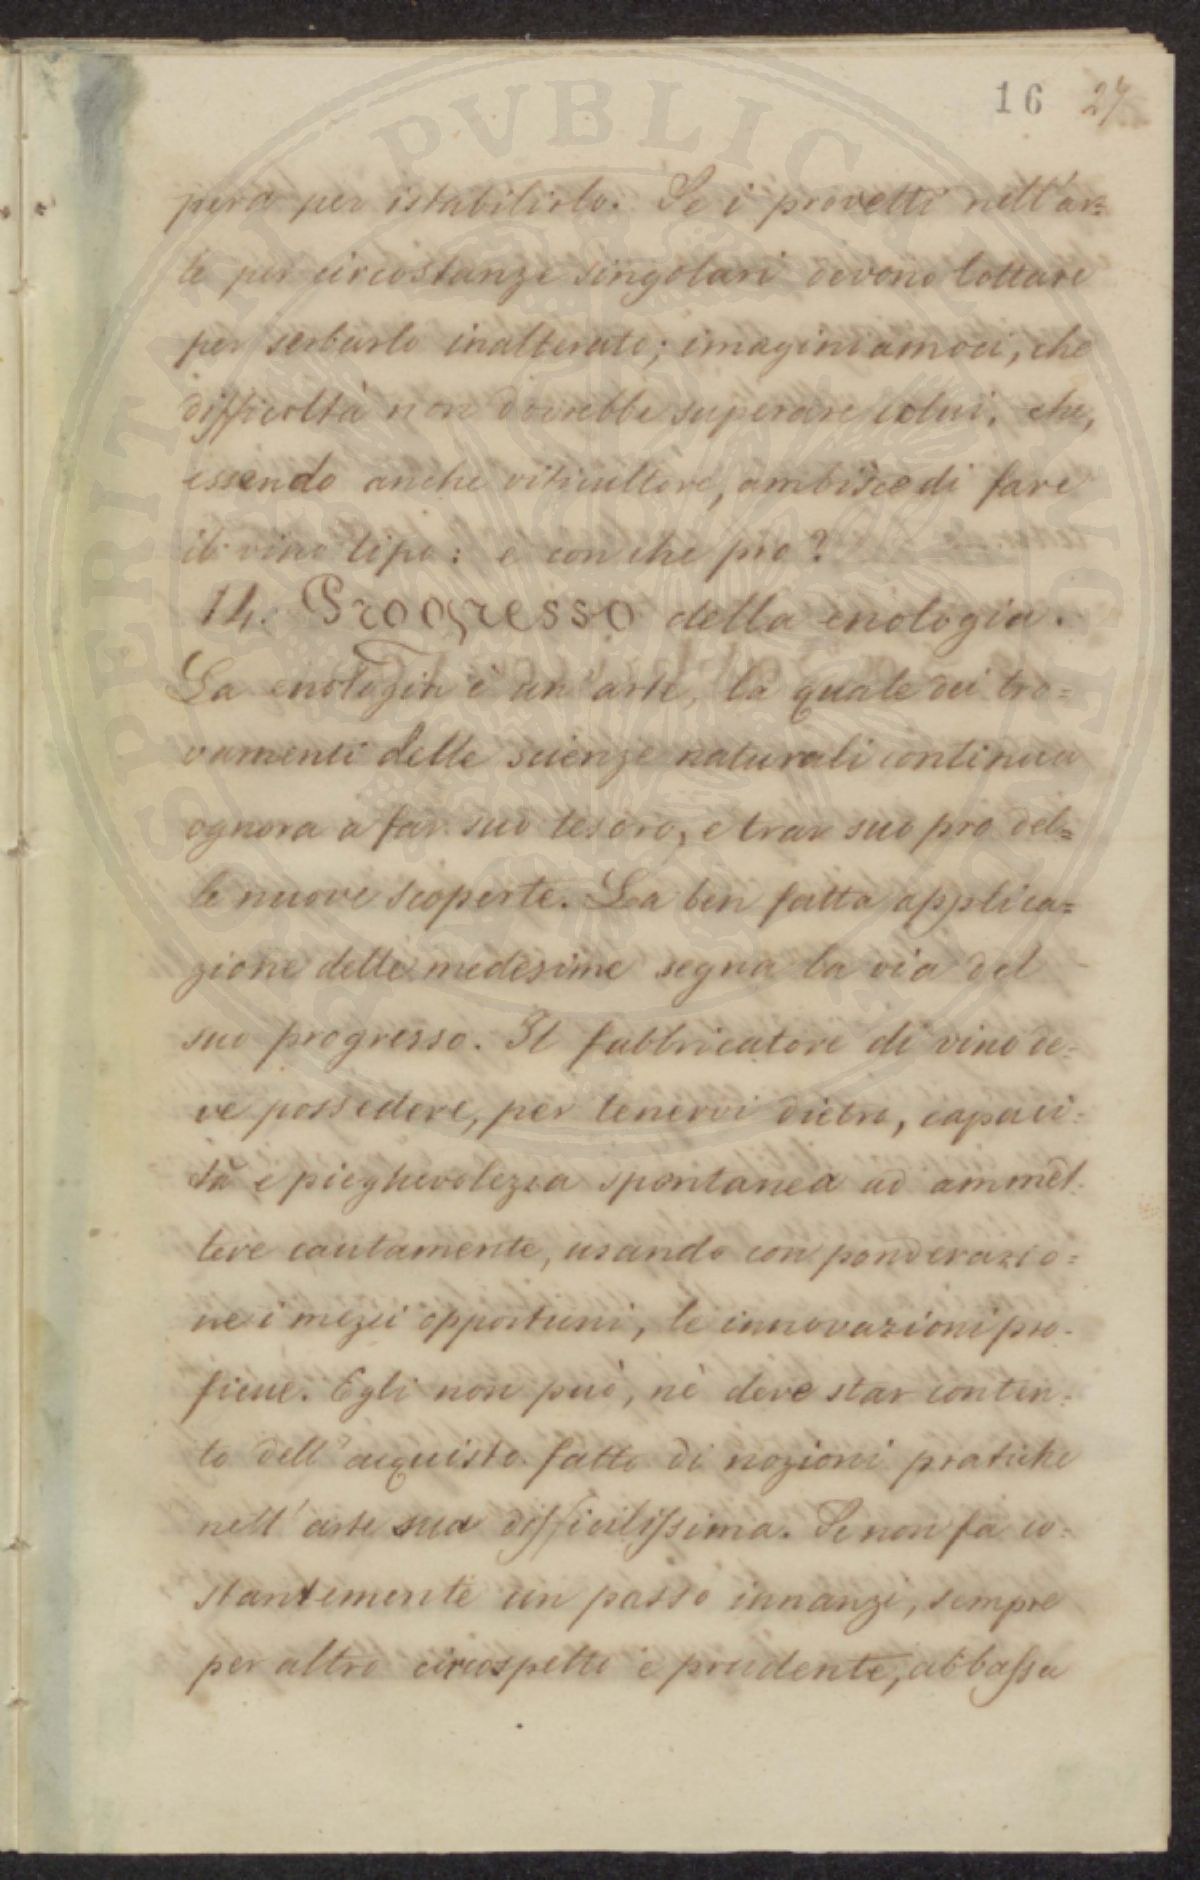 16 27
pera per istabilirlo. Se i provetti nell'ar=
te per circostanze singolari devono lottare
per serbarlo inalterato; imaginiamoci, che
difficoltà non dovrebbe superare colui, che,
essendo anche viticultore, ambisce di fare
il vino tipo: e con che pro?
14. Progresso della enologia.
La enologia è un'arte, la quale dei tro=
vamenti delle scienze naturali continua
ognora a far suo tesoro, e trar suo pro del=
le nuove scoperte. La ben fatta applica=
zione delle medesime segna la via del
suo progresso. Il fabbricatore di vino de=
ve possedere, per tenervi dietro, capaci-
tà e pieghevolezza spontanea ad ammet-
tere cautamente, usando con ponderazio=
ne i mezzi opportuni, le innovazioni pro-
ficue. Egli non può, nè deve star conten-
to dell'acquisto fatto di nozioni pratiche
nell'arte sua difficilissima. Se non fa co=
stantemente un passo innanzi, sempre
per altro circospetto e prudente, abbassa